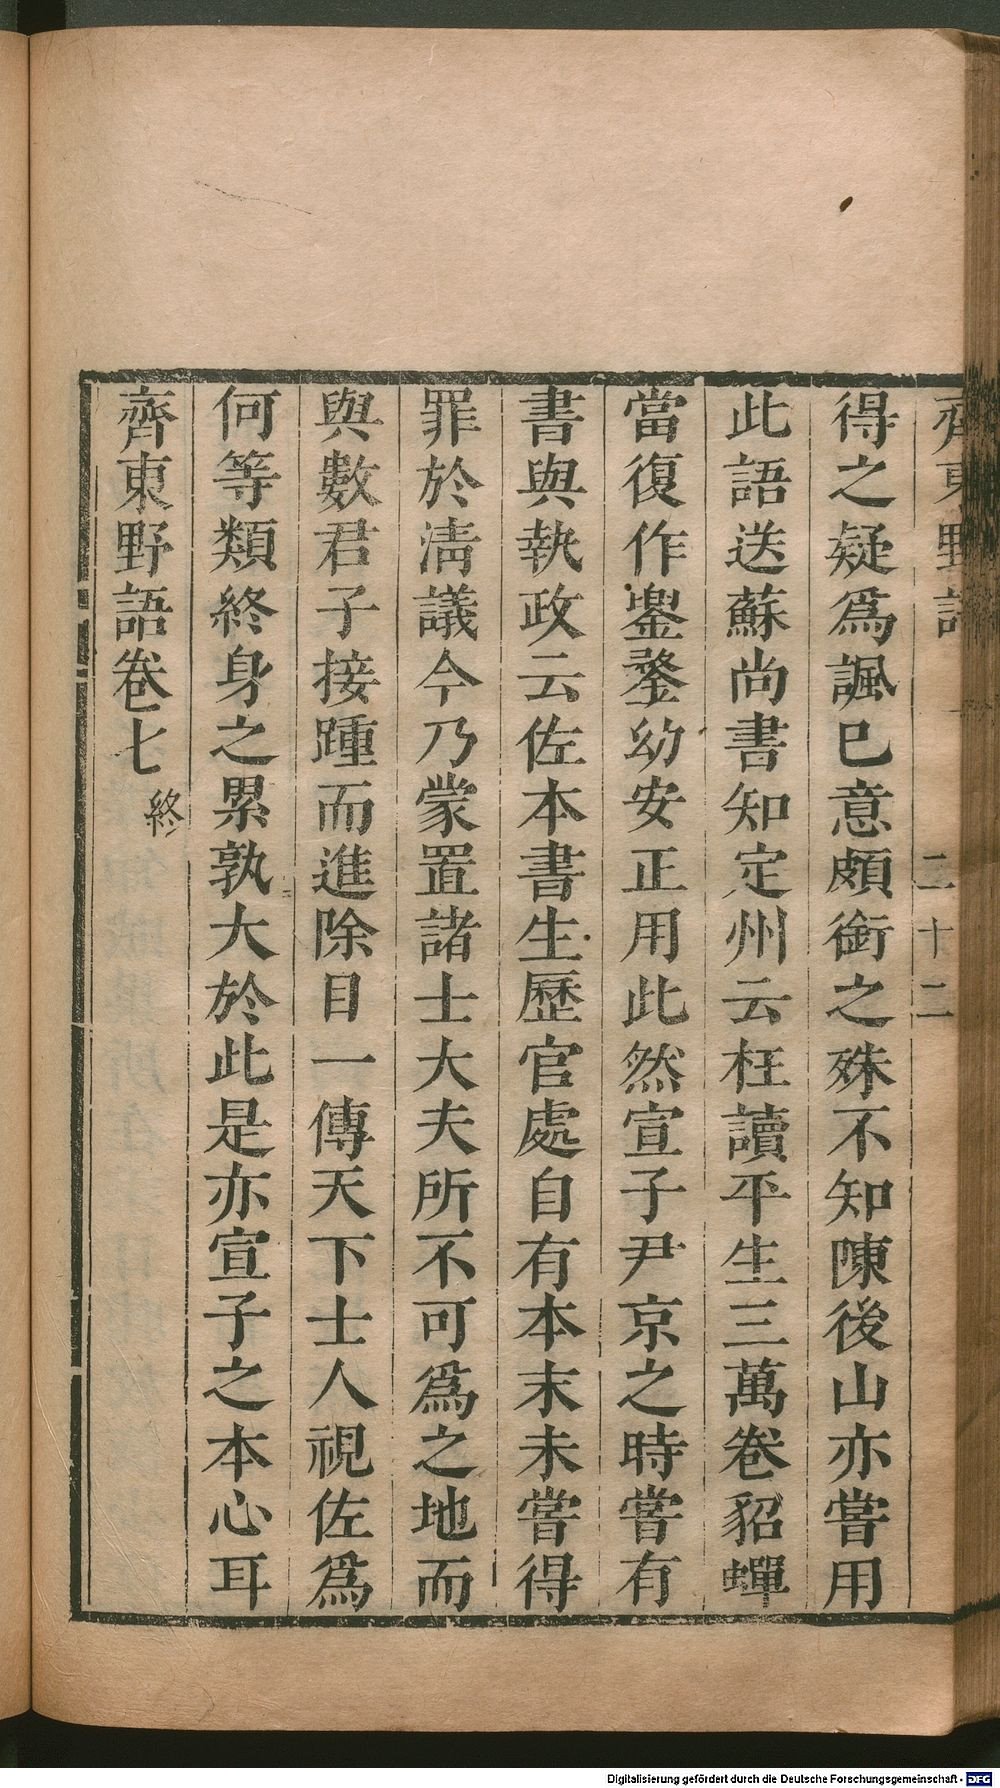 齊東野語
二十二
得之疑爲諷巳意頗銜之殊不知陳後山亦嘗用
此語送蘇尚書知定州云枉讀平生三萬卷貂蟬
當復作鍪幼安正用此然宣子尹京之時嘗有
書與執政云佐本書生歷官處自有本末未嘗得
罪於淸議今乃蒙置諸士大夫所不可爲之地而
與數君子接踵而進除目一傳天下士人視佐爲
何等類終身之累孰大於此是亦宣子之本心耳
齊東野語卷七 終
Digitalisierung gefördert durch die Deutsche Forschungsgemeinschaft - DFG